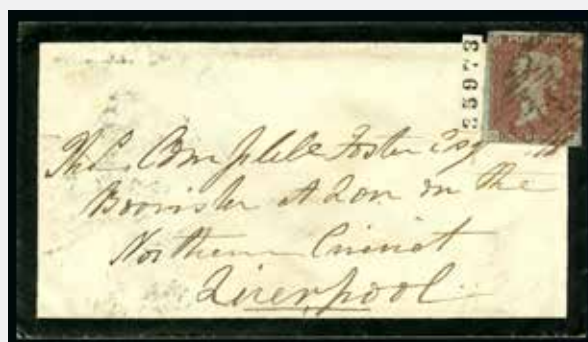 35973
Thos Campbell Foster Esq
Barrister at Law on the
Northern Circuit
Liverpool